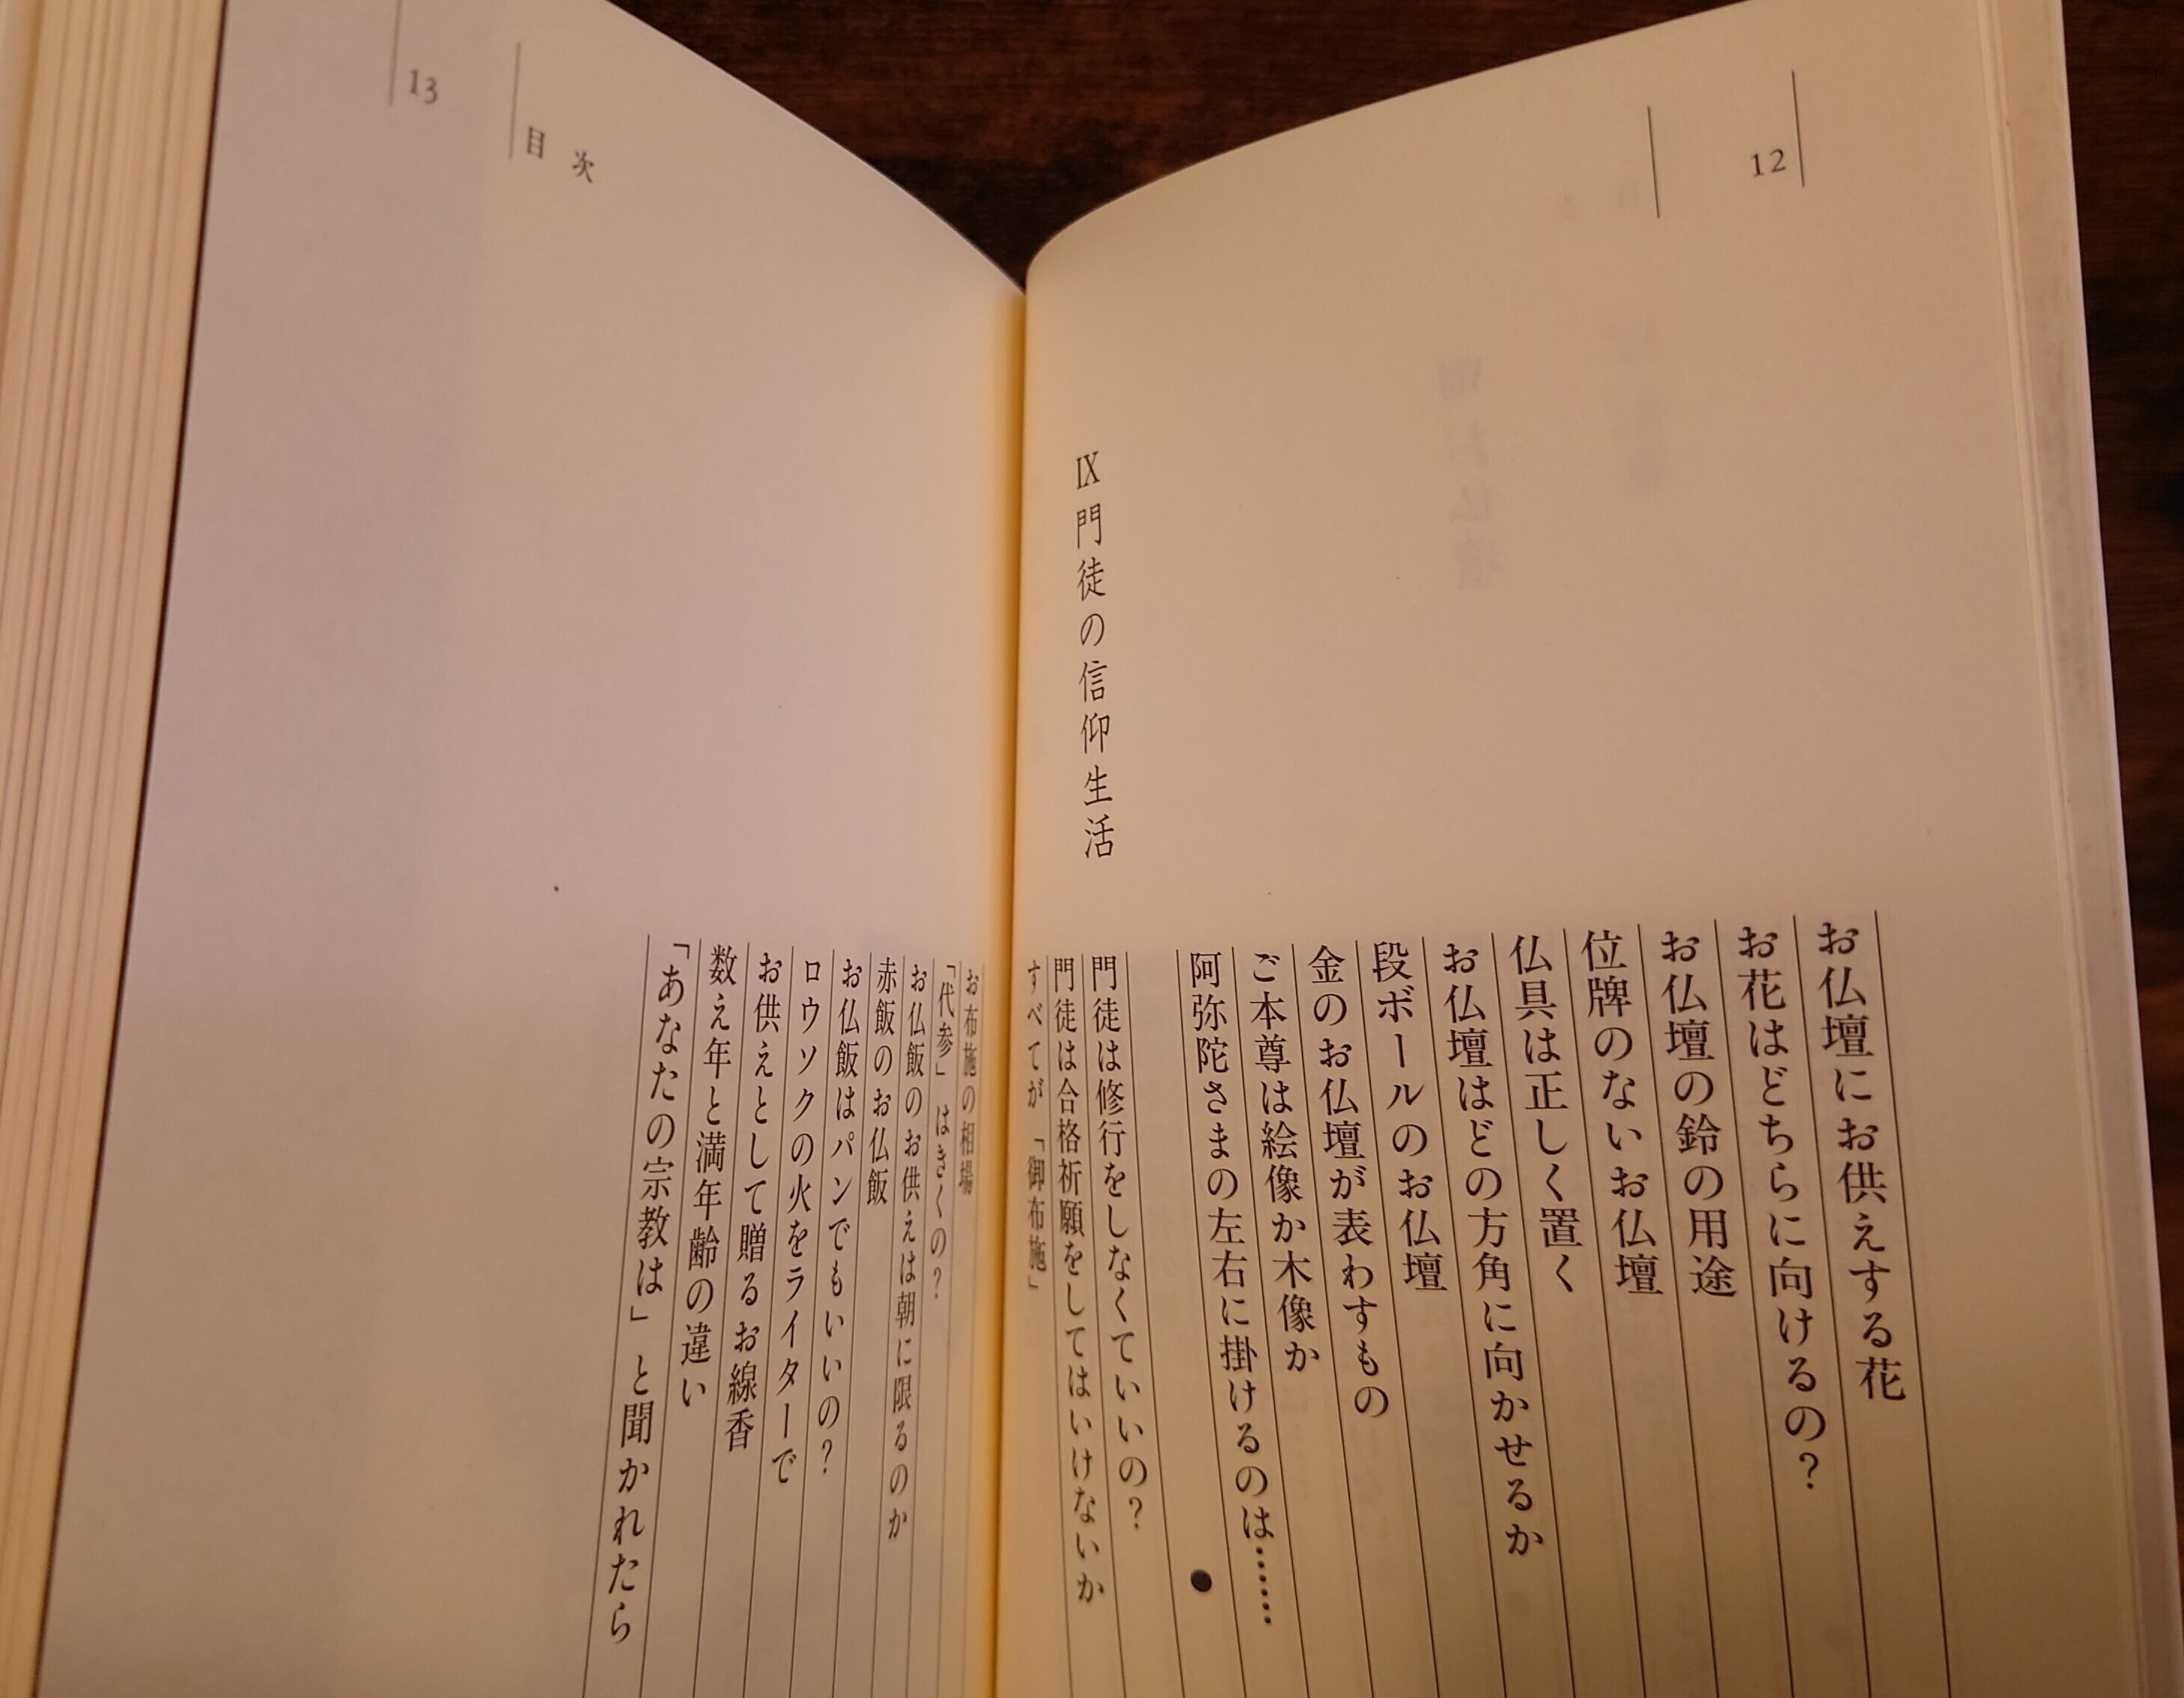 12
お仏壇にお供えする花
お花はどちらに向けるの？
お仏壇の鈴の用途
位牌のないお仏壇
仏具は正しく置く
お仏壇はどの方角に向かせるか
段ボールのお仏壇
金のお仏壇が表わすもの
ご本尊は絵像か木像か
阿弥陀さまの左右に掛けるのは……
●
Ⅸ 門徒の信仰生活
門徒は修行をしなくていいの？
門徒は合格祈願をしてはいけないか
すべてが「御布施」
お布施の相場
「代参」はきくの？
お仏飯のお供えは朝に限るのか
赤飯のお仏飯
お仏飯はパンでもいいの？
ロウソクの火をライターで
お供えとして贈るお線香
数え年と満年齢の違い
「あなたの宗教は」と聞かれたら
目次
13